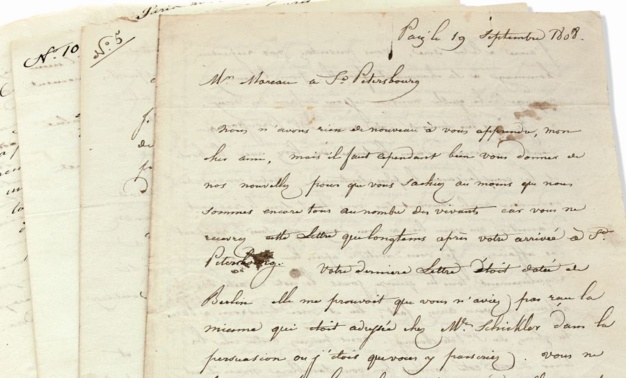 N.° 10
N.° 5
Paris le 19 Septembre 1808.
Mr. Moreau a St. Petersbourg
Nous n'avons rien de nouveau à vous apprendre, mon
cher ami, mais il faut cependant bien vous donner de
nos nouvelles pour que vous sachiez au moins que nous
sommes encore tous au nombre des vivants car vous ne
recevrez cette Lettre que longtems après votre arrivée à St.
Petersbourg. Votre derniere Lettre étoit datée de
Berlin elle me prouvoit que vous n'aviez pas recu la
mienne qui étoit adressée chez Mrs. Schickler dans la
persuasion ou j'étois que vous y passeriez. Vous ne